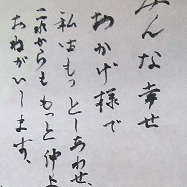 みんな幸せ
おかげ様で
私はもっとしあわせ、
これからももっと仲よ
おねがいします。